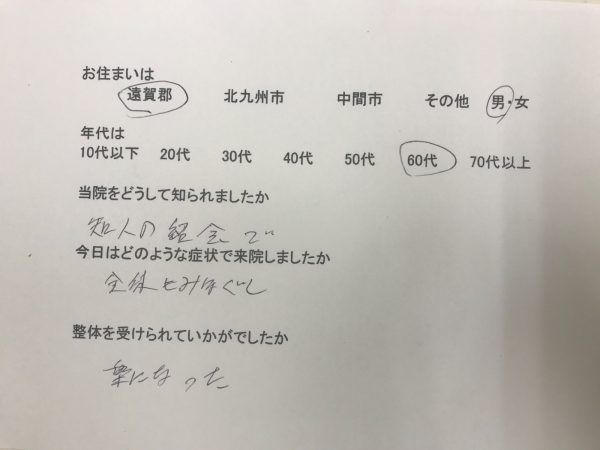 お住まいは
遠賀郡 北九州市 中間市 その他 男・女
年代は
10代以下 20代 30代 40代 50代 60代 70代以上
当院をどうして知られましたか
知人の紹会で
今日はどのような症状で来院しましたか
全体もみほぐし
整体を受けられていかがでしたか
楽になった